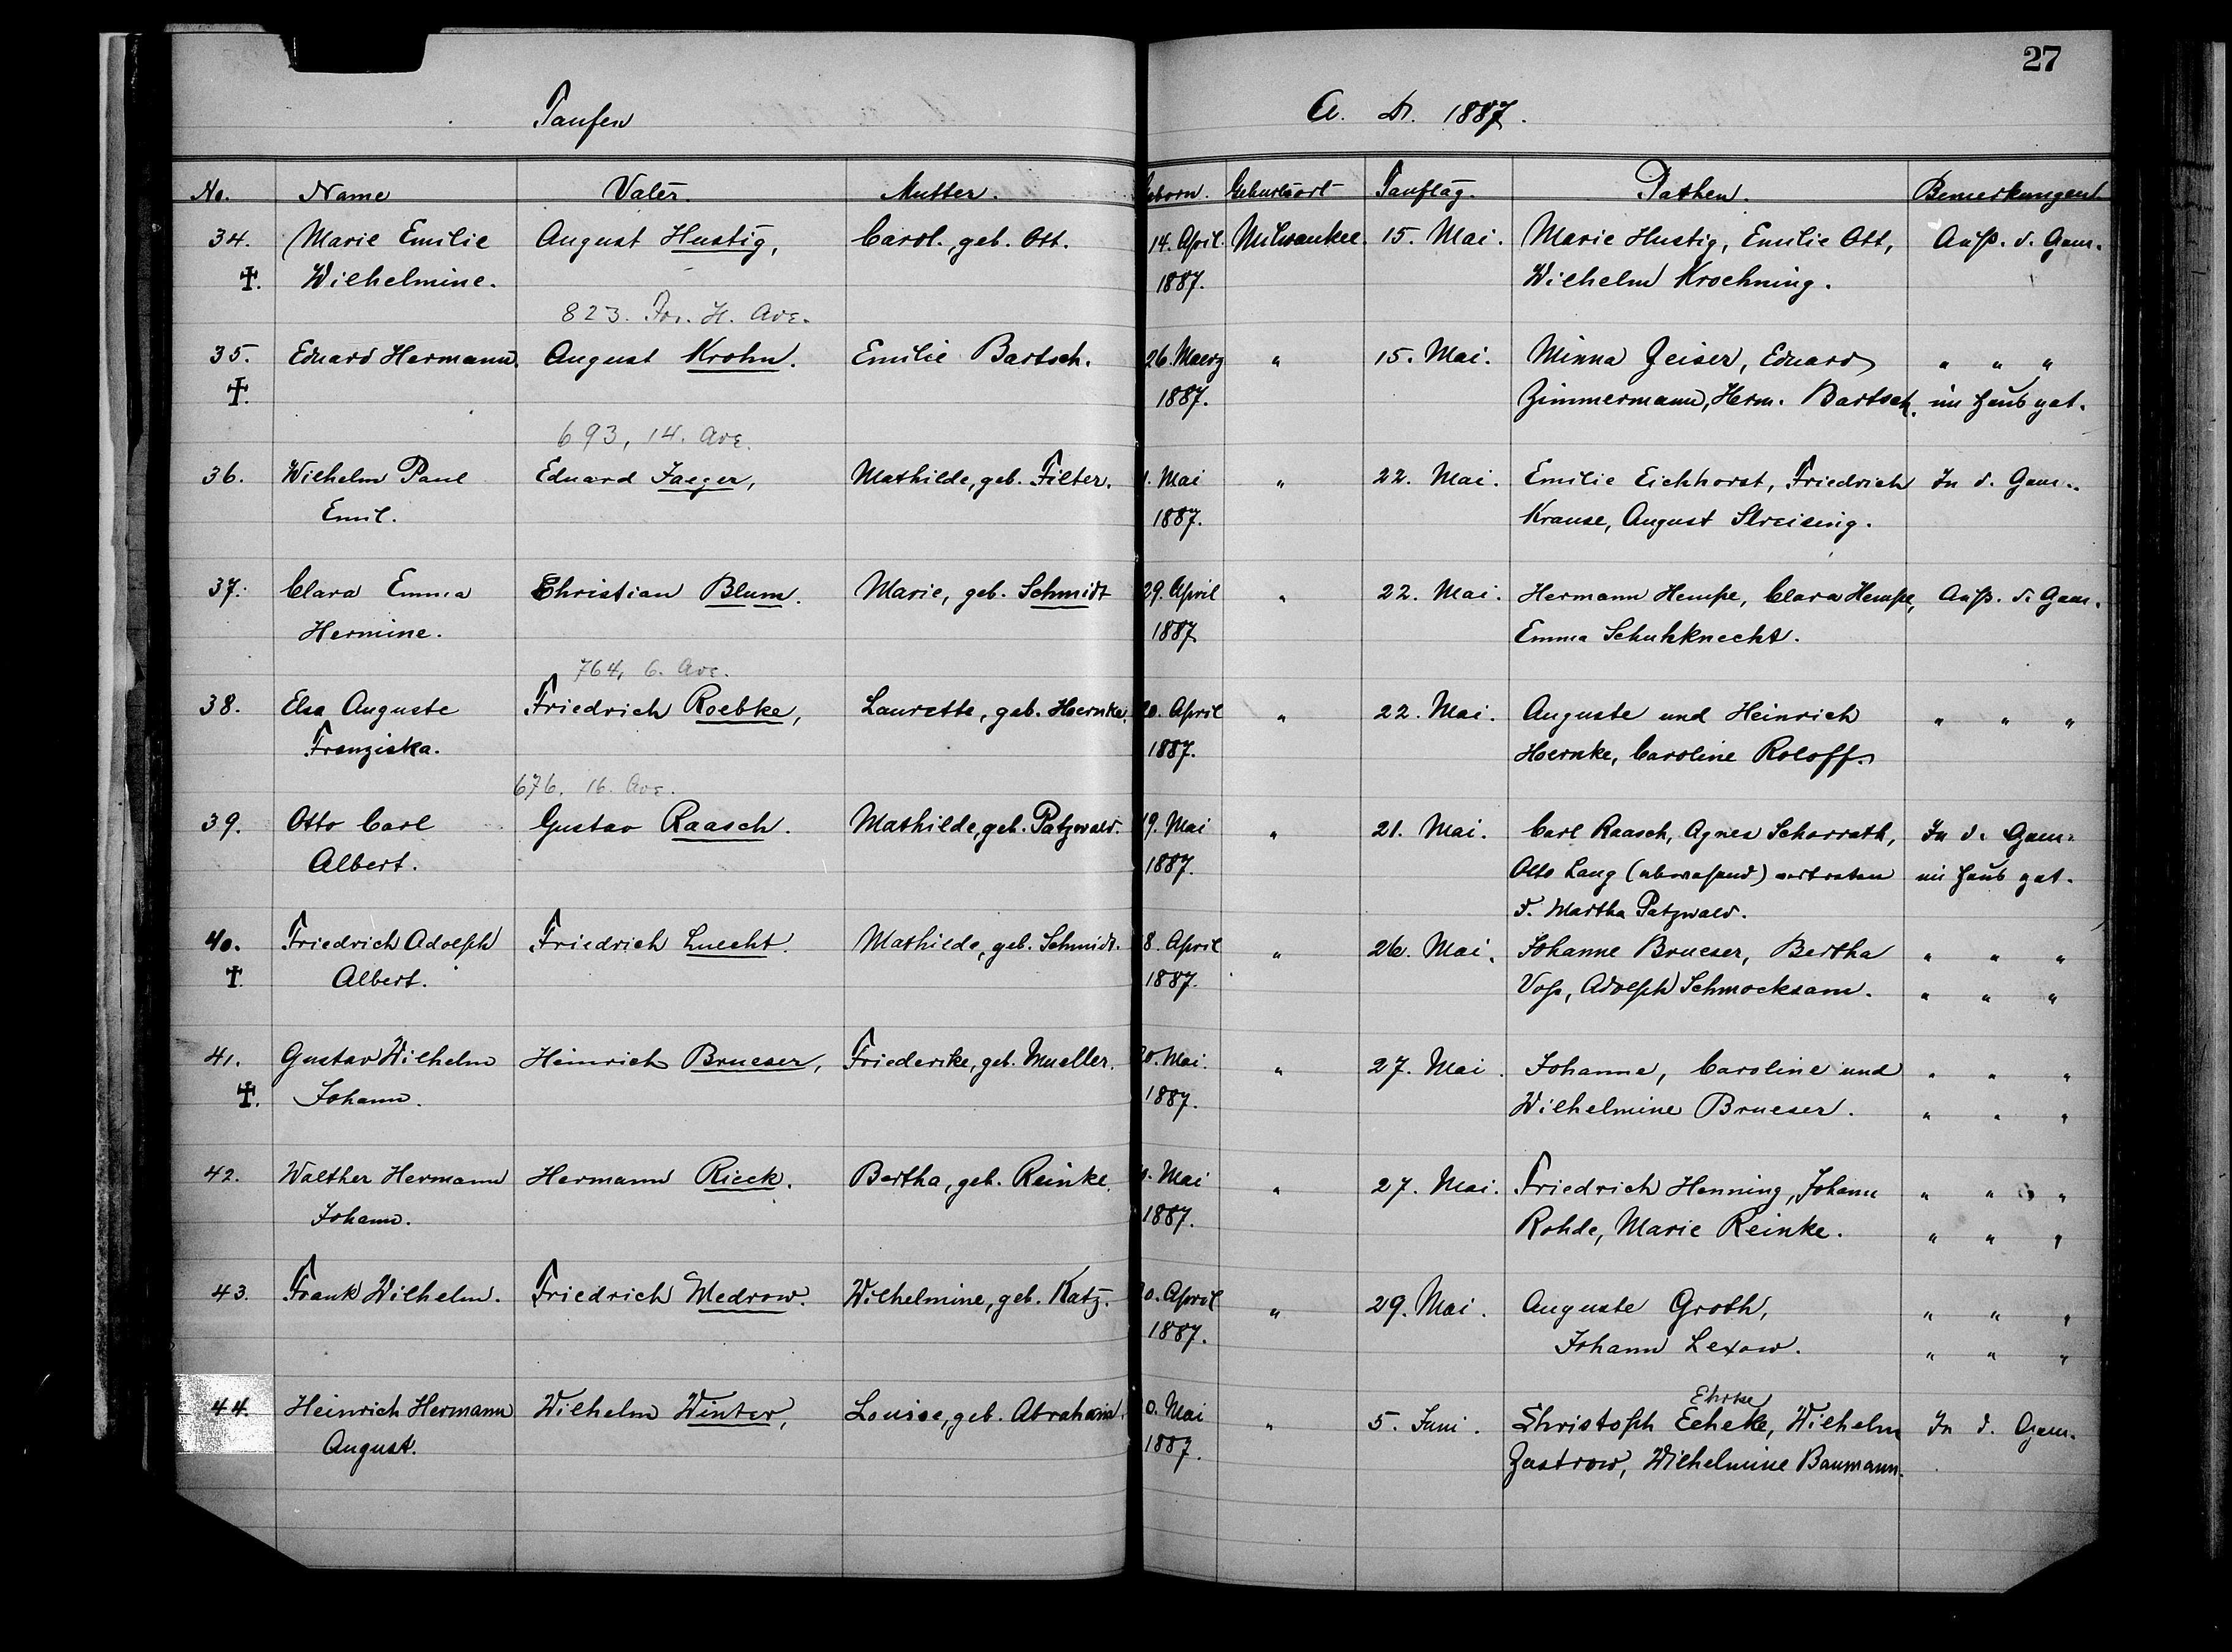 27
Taufen A. D. 1887.
No. Name Vater. Mutter. Geburtsort Tauftag. Pathen. Bemerkungen
34. Marie Emilie August Hustig, Carol. geb. Ott. 14. April. Milwaukee. 15. Mai. Marie Hustig, Emilie Ott, Auß. d. Gem.
Wilhelmine. 1887. Wilhelm Kroehning.
823. For. H. Ave.
35. Eduard Hermann. August Krohn. Emilie Bartsch. 26. Maerz " 15. Mai. Minna Zeiser, Eduard " " "
1887. Zimmermann, Herm. Bartsch. im Haus get.
693, 14. Ave.
36. Wilhelm Paul Eduard Jaeger, Mathilde, geb. Filter. 1. Mai " 22. Mai. Emilie Eichhorst, Friedrich In d. Gem.
Emil. 1887. Krause, August Streising.
37. Clara Emma Christian Blum. Marie, geb. Schmidt 29. April " 22. Mai. Hermann Hempe, Clara Hempe, Auß. d. Gem.
Hermine. 1887 Emma Schuhknecht.
764, 6. Ave.
38. Elsa Auguste Friedrich Roebke, Laurette, geb. Hoernke. 20. April " 22. Mai. Auguste und Heinrich " " "
Franziska. 1887. Hoernke, Caroline Roloff.
676. 16. Ave.
39. Otto Carl Gustav Raasch. Mathilde, geb. Patzwald. 19. Mai " 21. Mai. Carl Raasch, Agnes Schorrath, In d. Gem.
Albert. 1887. Otto Lang (abwesend) vertreten im Haus get.
d. Martha Patzwald.
40. Friedrich Adolph Friedrich Luecht. Mathilde, geb. Schmidt. 8. April " 26. Mai. Johanne Brueser, Bertha " " "
Albert. 1887. Voß, Adolph Schmocksam. " " "
41. Gustav Wilhelm Heinrich Brueser, Friederike, geb. Mueller. 0. Mai. " 27. Mai. Johanne, Caroline und " " "
Johann. 1887. Wilhelmine Brueser. " " "
42. Walther Hermann Hermann Rieck. Bertha, geb. Reinke. Mai " 27. Mai. Friedrich Henning, Johann " " "
Johann. 1887. Rohde, Marie Reinke. " " "
43. Frank Wilhelm. Friedrich Medrow. Wilhelmine, geb. Katz. 0. April " 29. Mai. Auguste Groth, " " "
1887. Johann Lexow. " " "
Ehrke
44. Heinrich Hermann Wilhelm Winter, Louise, geb. Abraham. 0. Mai " 5. Juni. Christoph Eeheke, Wilhelm In d. Gem.
August. 1887. Zastrow, Wilhelmine Baumann.